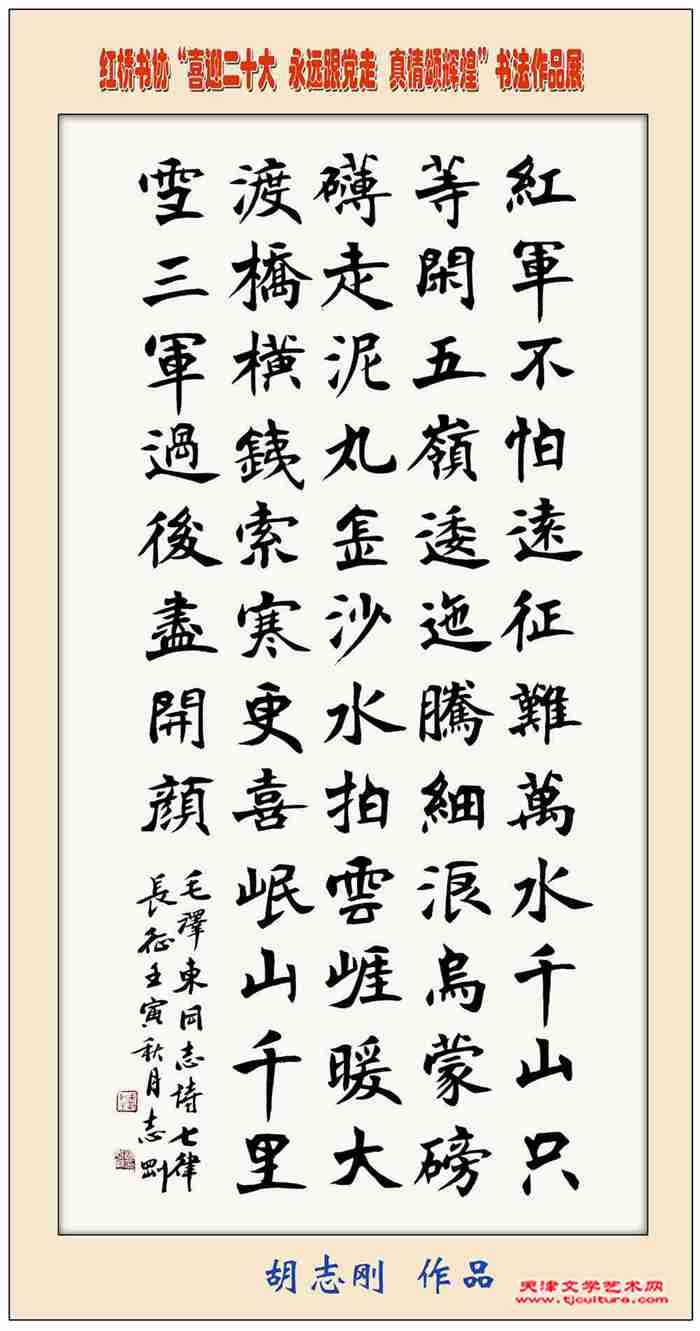 红桥书协“喜迎二十大 永远跟党走 真情颂辉煌”书法作品展
紅軍不怕遠征難萬水千山只
等閑五嶺逶迤騰細浪烏蒙磅
礴走泥丸金沙水拍雲崖暖大
渡橋橫鐵索寒更喜岷山千里
雪三軍過後盡開顔
毛澤東同志詩七律
長征壬寅秋月志剛
胡志刚 作品
天津文学艺术网
www.tjculture.com